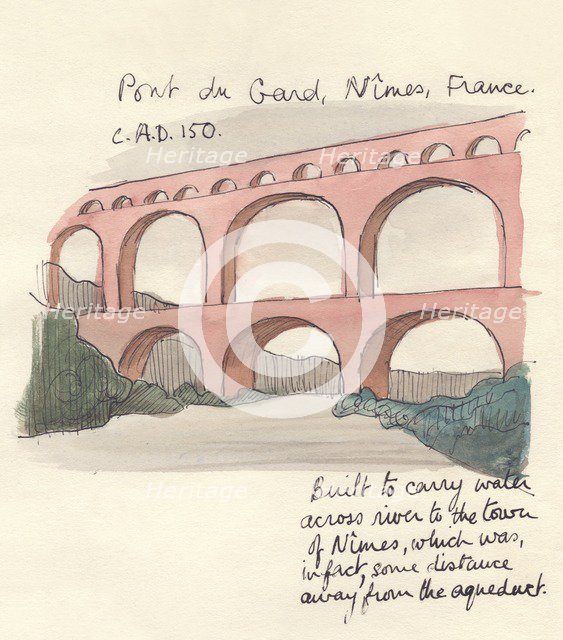 Pont du Gard, Nîmes, France.
c. A.D. 150.
Heritage Heritage Heritage
Heritage Heritage Heritage
Heritage Heritage Heritage
Built to carry water
across river to the town
of Nîmes, which was,
in fact, some distance
away from the aqueduct.